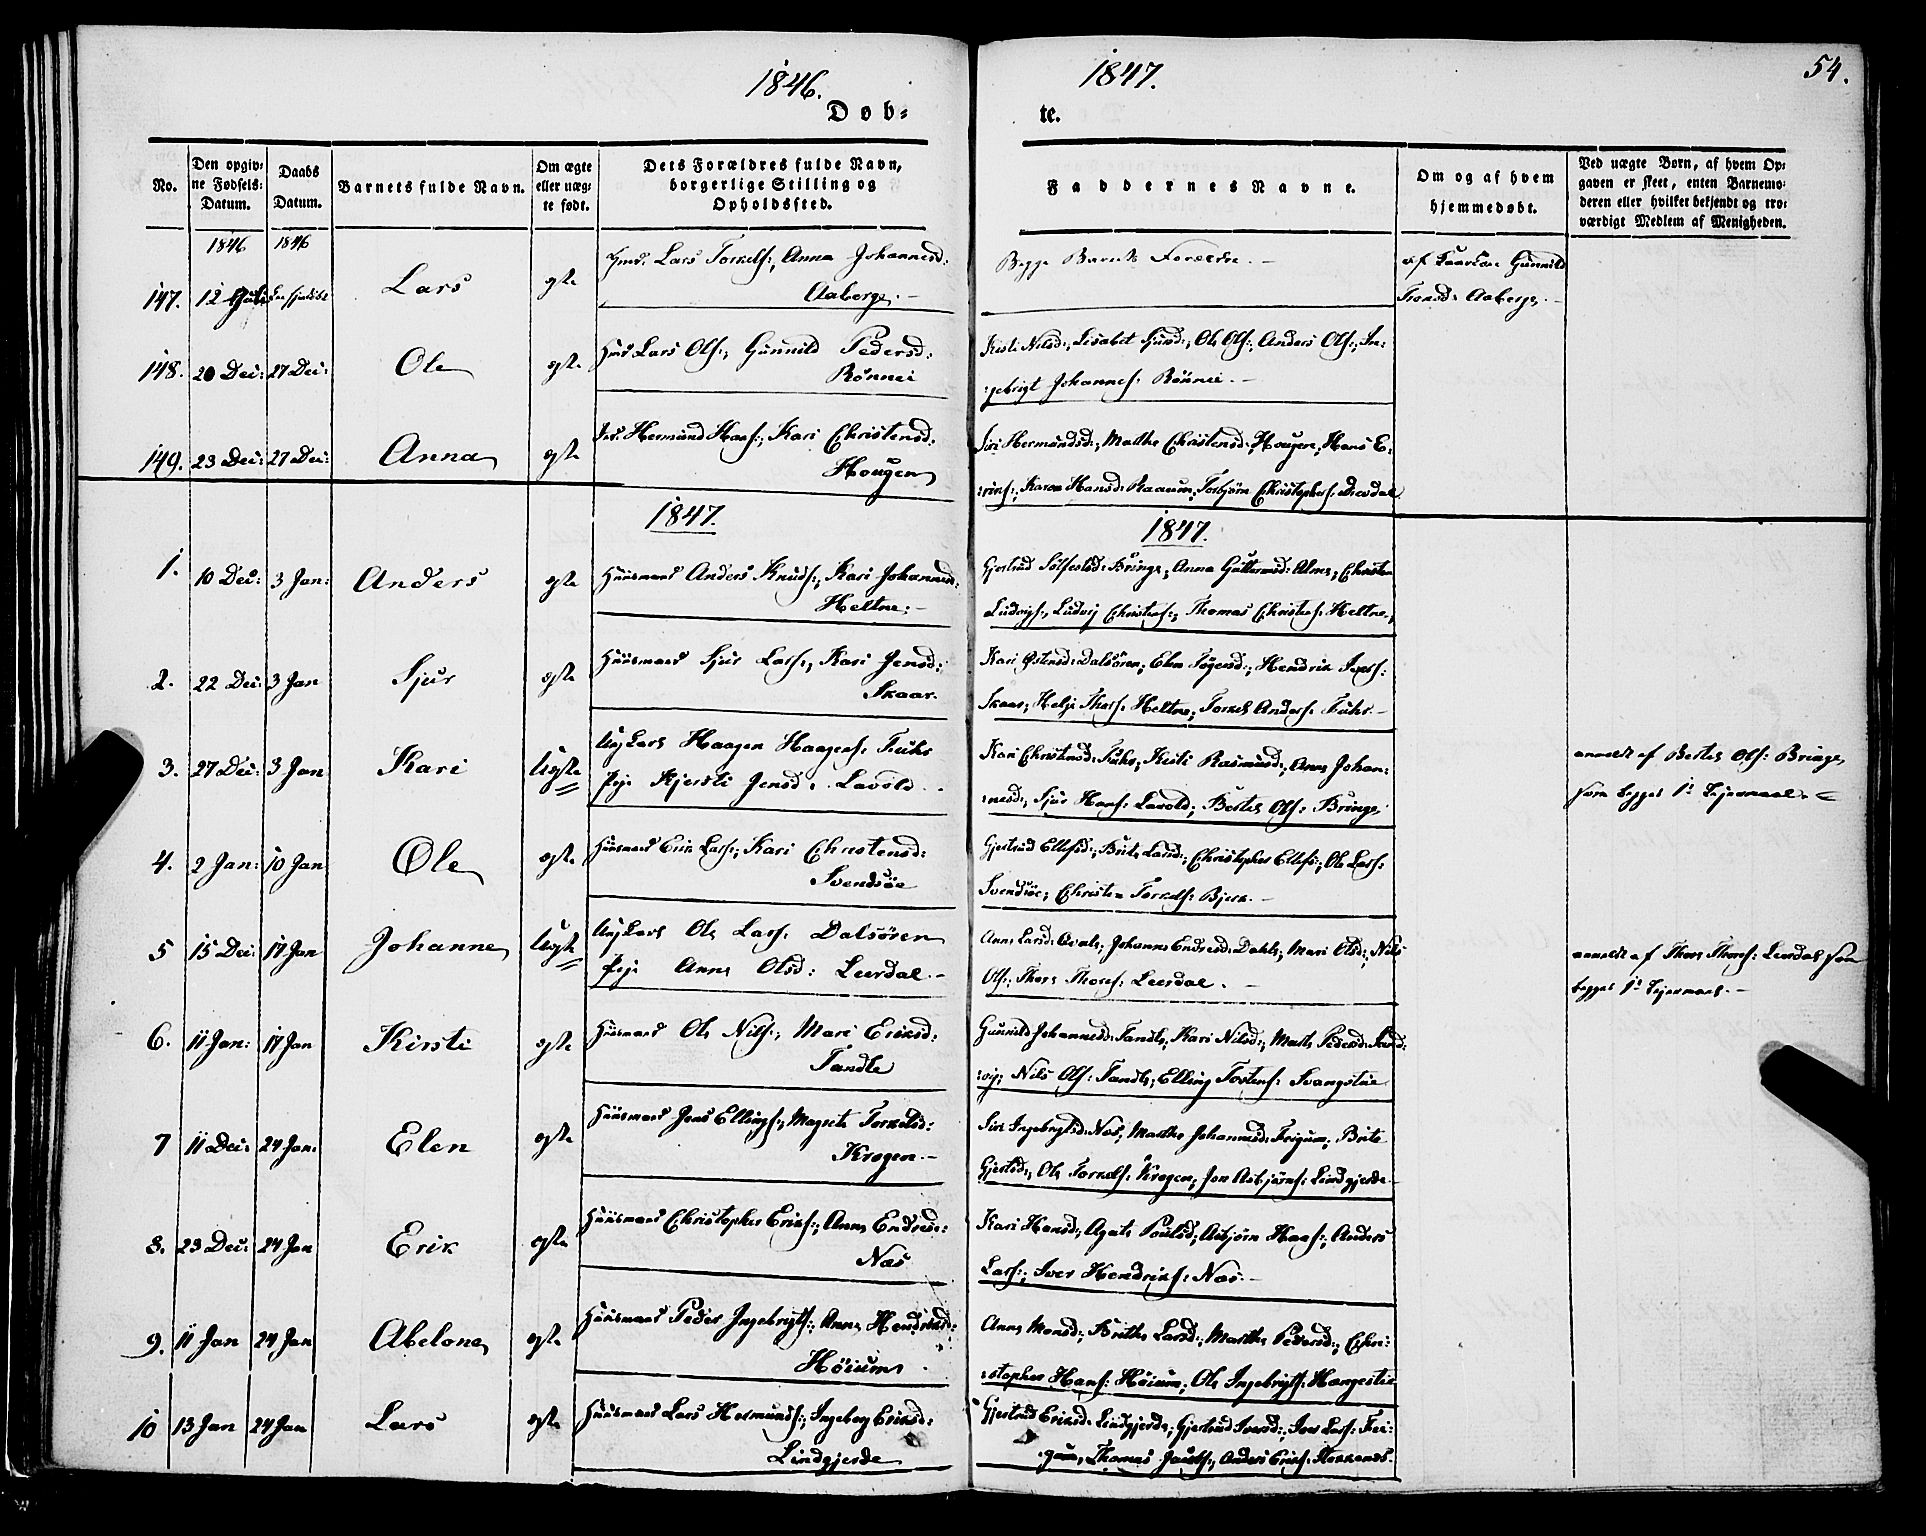 1846.
1847.
54.
Døb=
te.
No.
Den opgiv=
ne Fødsels=
Datum.
Daabs
Datum.
Barnets fulde Navn.
Om ægte
eller uæg=
te født.
Dets Forældres fulde Navn,
borgerlige Stilling og
Opholdssted.
Faddernes Navne.
Om og af hvem
hjemmedøbt.
Ved uægte Børn, af hvem Op=
gaven er skeet, enten Barnemo=
deren eller hvilket bekjendt og tro=
værdigt Medlem af Menigheden.
1846 1846
147. 12 Lars ægte Lars Torkels:, Anna Johannesd:
Aaberge.
Begge Barnets Forældre.
af Gunnild
Aaberge.
148. 20 Dec: 27 Dec: Ole ægte Lars Ols:, Gunnild Pedersd:
Rønnei
Kisti Nilsd:, Lisabet Sjursd:, Ole Ols:, Anders Ols:, In=
gebrigt Johannes: Rønnei.
149. 23 Dec: 27 Dec: Anna ægte Hermund Hans:, Kari Christensd:
Hougen
Siri Hermundsd:, Marthe Christensd: Hougen, Hans E=
riks:, Karen Hansd: Raaum, Torbjørn Christophers:
1847.
1847.
1. 10 Dec: 3 Jan: Anders ægte Huusmand Anders Knuds:, Kari Johannesd:
Heltne.
Gjertrud Bringe, Anna Guttormsd: Alme, Christen
Ludvigs:, Ludvig Christens:, Thomas Christens: Heltne.
2. 22 Dec: 3 Jan Sjur ægte Huusmand Sjur Lars:, Kari Jensd:
Skaar.
Kari Østensd: Dalsøren, Elen Hendrik
Skaar, Helje Thors: Heltne, Torkel Anders: Fuhr.
3. 27 Dec: 3 Jan Kari Uægte Ungkarl Haagen Haagens: Fuhr
Pige Kjersti Jensd: Lavold.
Kari Christensd: Fuhr, Kisti Rasmusd:, Anna Johan=
nesd:, Sjur Hans: Lavold, Bertel Ols: Bringe
anmeldt af Bertel Ols: Bringe,
som begges 1ste Leiermaal.
4. 2 Jan: 10 Jan Ole ægte Huusmand Erik Lars:, Kari Christensd:
Svendsøe
Gjertrud Ellefsd:, Brite Larsd:, Christopher Ellefs:, Ole Lars:
Svendsøe, Christen Torkels: Bjerk.
5 15 Dec: 17 Jan Johanne Uægte Ungkarl Ole Lars: Dalsøren
Pige Anna Olsd: Leerdal.
Anna Larsd: Johanne Endresd: Dahle, Mari Olsd:, Nils
Ols:, Thore Thores: Leerdal.
anmeldt af Thore Thores: Leerdal som
begges 1ste Leiermaal.
6. 11 Jan: 17 Jan Kirsti ægte Huusmand Ole Nils:, Mari Eriksd:
Tandle
Gunnild Johannesd: Tandle, Kari Nilsd:, Marthe Pedersd: Sand=
vig, Nils Ols: Tandle, Elling Tostens: Svangstue
7 11 Dec: 24 Jan: Elen ægte Huusmand Jens Ellings:, Magrete Torkelsd:
Krogen.
Siri Ingebrigtsd: Næs, Marthe Johannesd: Feigum, Brite
Gjertsd:, Ole Torkels: Krogen, Jon Asbjørns: Lindgjerde
8. 23 Dec: 24 Jan Erik ægte Huusmand Christopher Eriks:, Anna Endresd:
Næs
Kari Hansd:, Agate Poulsd:, Asbjørn Hans:, Anders
Lars:, Iver Hendriks: Næs.
9. 11 Jan 24 Jan Abelone ægte Huusmand Peder Ingebrigts:, Anna Hendriksd:
Høium
Anna Monsd:, Brithe Larsd:, Marthe Pedersd:, Chri=
stopher Hans: Høium, Ole Ingebrigts: Haugestue
10 13 Jan 24 Jan Lars ægte Huusmand Lars Hermunds:, Ingeborg Eriksd:
Lindgjerde
Gjertrud Eriksd: Lindgjerde, Gjertrud Iversd:, Iver Lars: Fei=
gum, Thomas Anders Eriks: